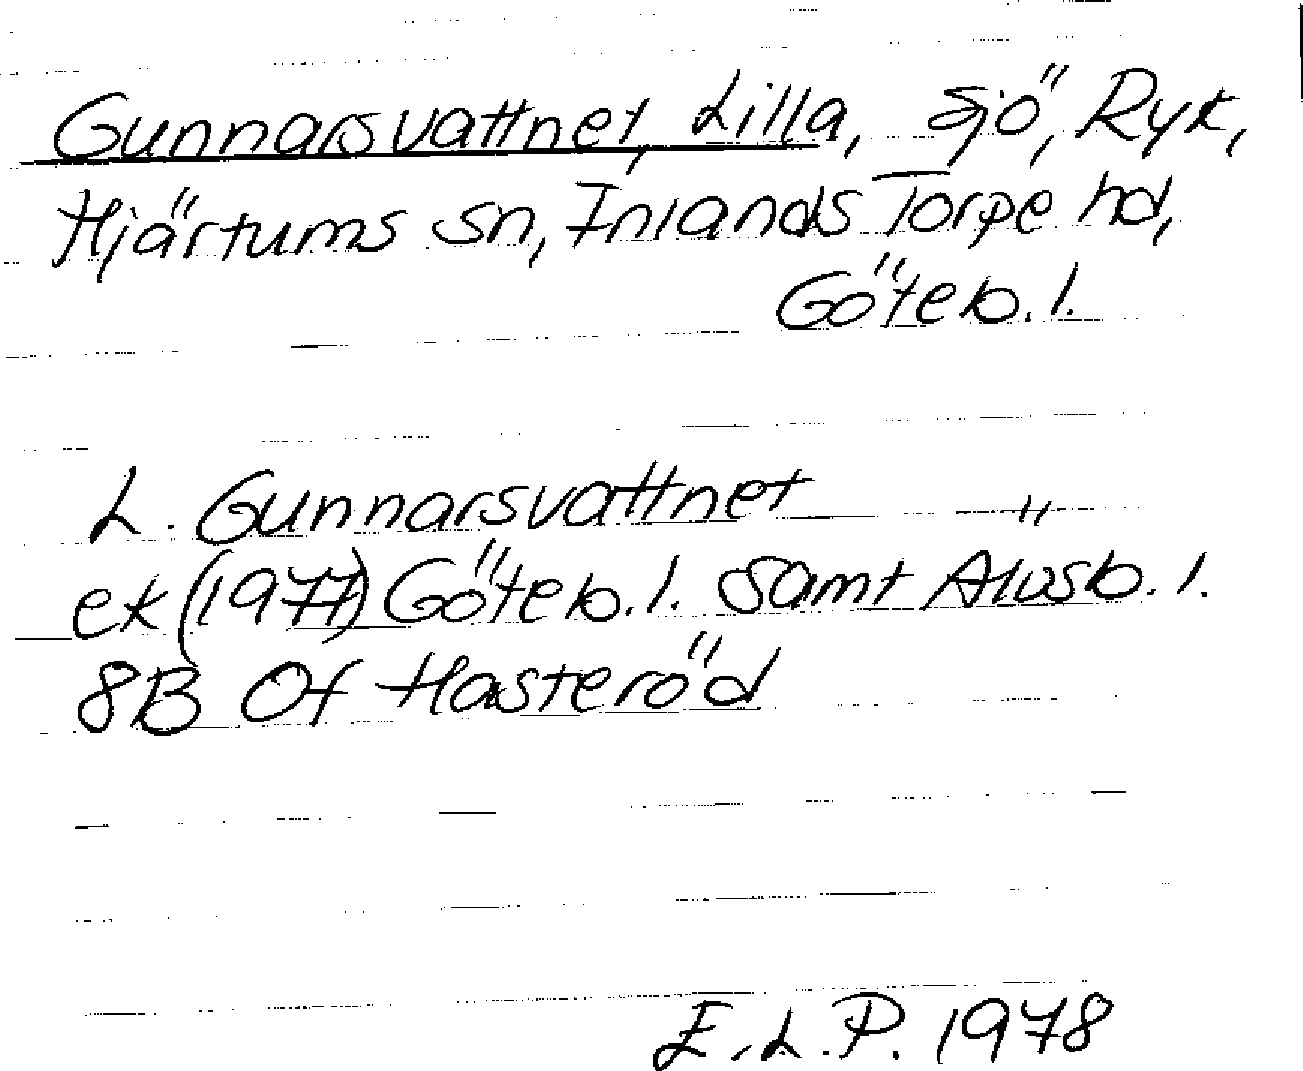 Gunnarsvattnet, Lilla, sjö, Ryk,
Hjärtums sn, Inlands Torpe hd,
Göteb. l.
L. Gunnarsvattnet "
ek (1977) Göteb. l. samt Älvsb. l.
8B 0f Hasteröd
E. L. P. 1978